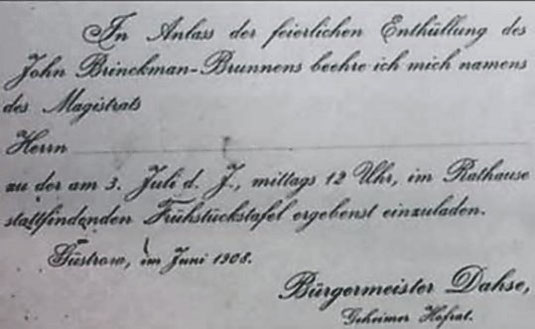 In Anlass der feierlichen Enthüllung des
John Brinckman-Brunnens beehre ich mich namens
des Magistrats
Herrn
zu der am 3. Juli d. J., mittags 12 Uhr, im Rathause
stattfindenden Frühstückstafel ergebenst einzuladen.
Güstrow, im Juni 1908.
Bürgermeister Dahse,
Geheimer Hofrat.